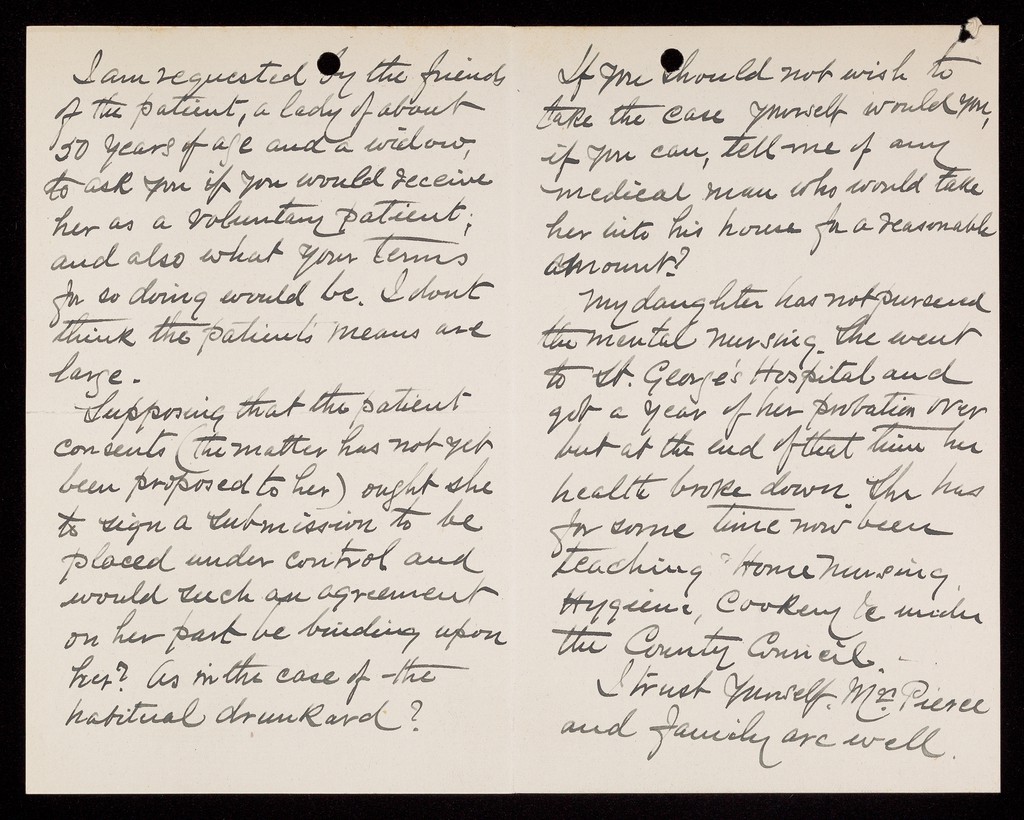 I am requested by the friends
of the patient, a lady of about
50 years of age and a widow,
to ask you if you would receive
her as a voluntary patient;
and also what your terms
for so doing would be. I dont
think the patient's means are
large.
Supposing that the patient
consents (the matter has not yet
been proposed to her) ought she
to sign a submission to be
placed under control and
would such an agreement
on her part be binding upon
her? As in the case of the
habitual drunkard?
If you should not wish to
take the case yourself would you,
if you can, tell me of any
medical man who would take
her into his house for a reasonable
amount?
My daughter has not pursued
the mental nursing. She went
to St. George's Hospital and
got a year of her probation over
but at the end of that time her
health broke down. She has
for some time now been
teaching "Home Nursing,
Hygiene, Cookery &c under
the County Council.
I trust yourself. Mrs. Pierce
and family are well.